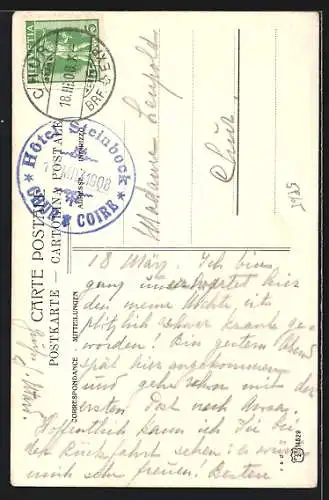 HELVETIA
18.III.08
BRF. EXP.
Hôtel Steinbock
1908
CHUR & COIRE
CARTE POSTALE
POSTKARTE — CARTOLINA POSTALE
ADRESSE INDIRIZZO
CORRESPONDANCE - MITTEILUNGEN
Madame Leupold
Chur.
18 März. Ich bin
ganz unerwartet hier
den meine Nichte ist
plötzlich schwer krank ge-
worden! Bin gestern Abend
spät hier angekommen
und gehe schon mit der
ersten Post nach Arosa.
Hoffentlich kann ich Sie bei
der Rückfahrt sehen: es würde
mich sehr freuen! Besten
14529